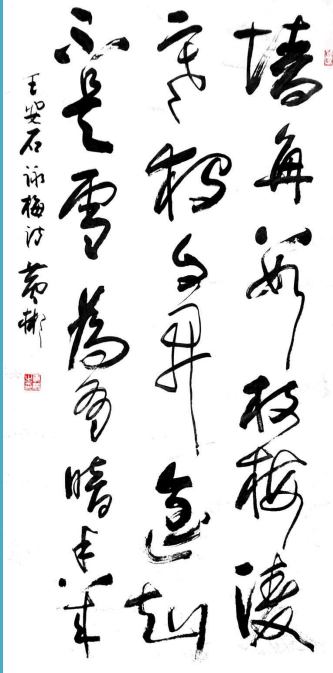 墙角数枝梅凌
寒独自开遥知
不是雪為有暗香来
王安石詠梅诗 黄彬